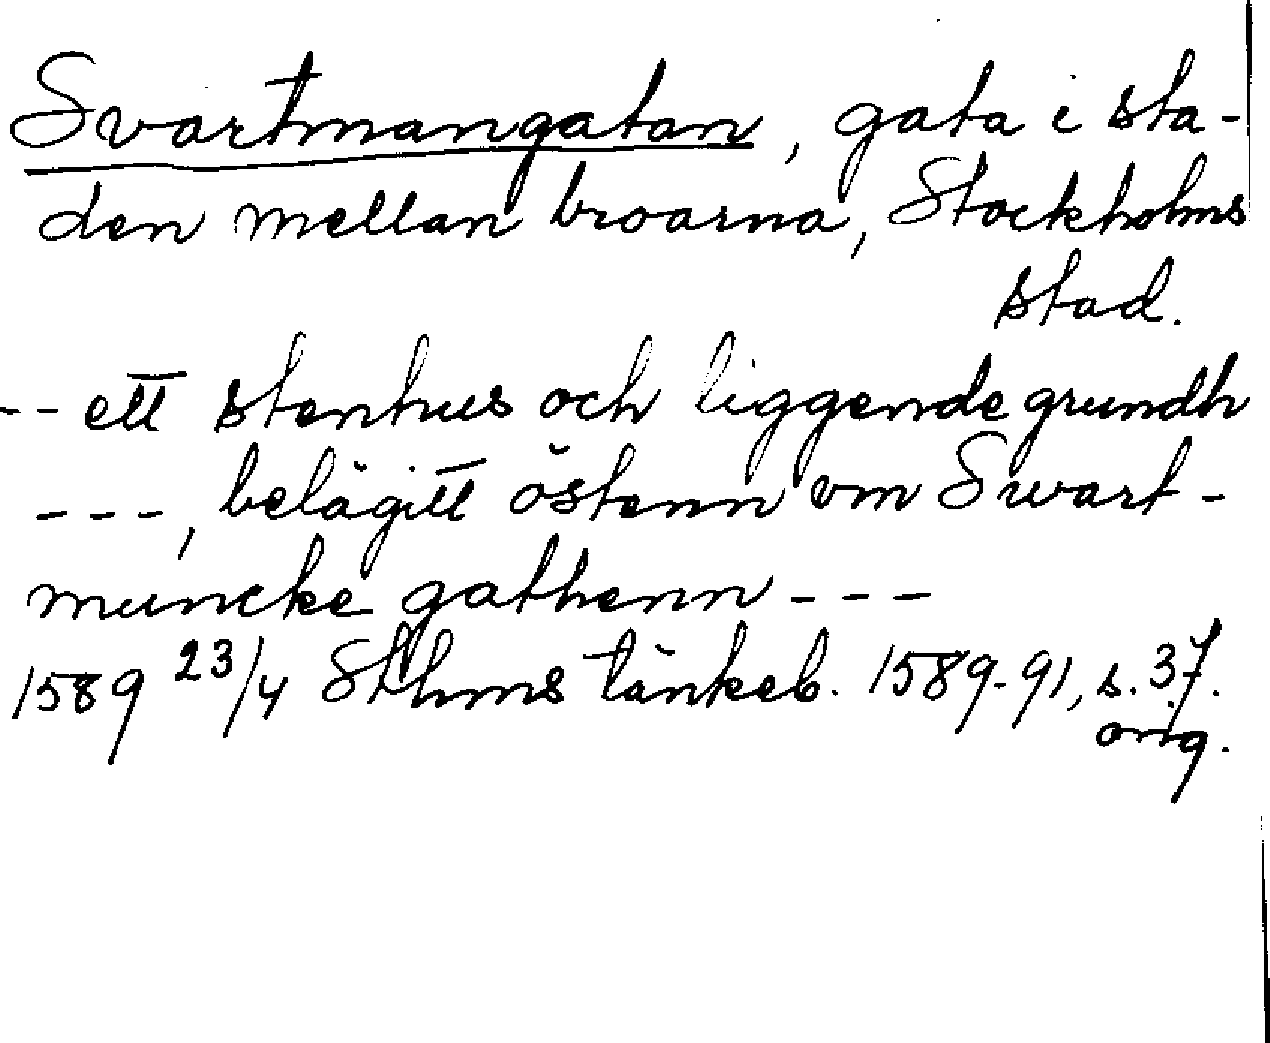 Svartmangatan, gata i sta-
den mellan broarna, Stockholms
stad.
-- ett stenhus och liggende grundh
---, belägitt östenn vm Swart-
muncke gathenn ---
1589 23/4 Sthms tänkeb. 1589-91, s. 37.
orig.